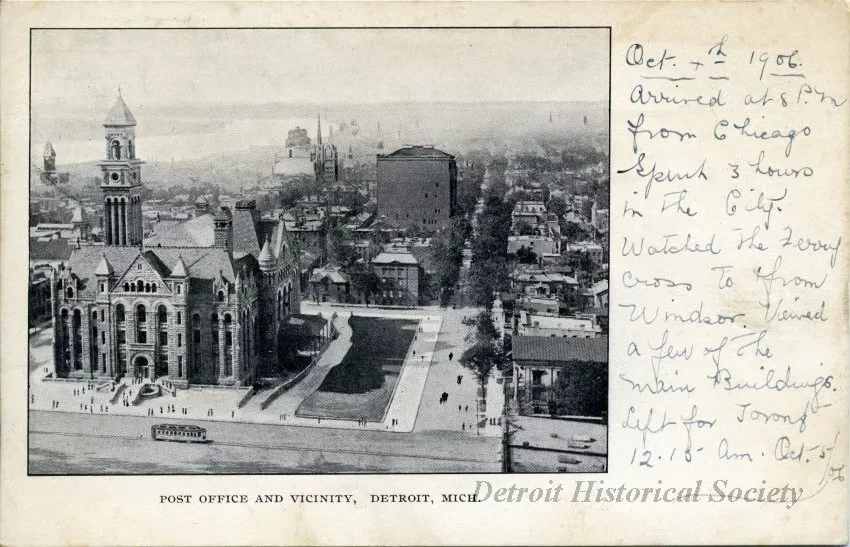 Oct. 4th 1906.
Arrived at 8 P.M
from Chicago
Spent 3 hours
in the City.
Watched The Ferry
cross To & from
Windsor. Viewed
a few of the
main Buildings.
Left for Toronto
12.15 Am. Oct. 5/06
POST OFFICE AND VICINITY, DETROIT, MICH.
Detroit Historical Society